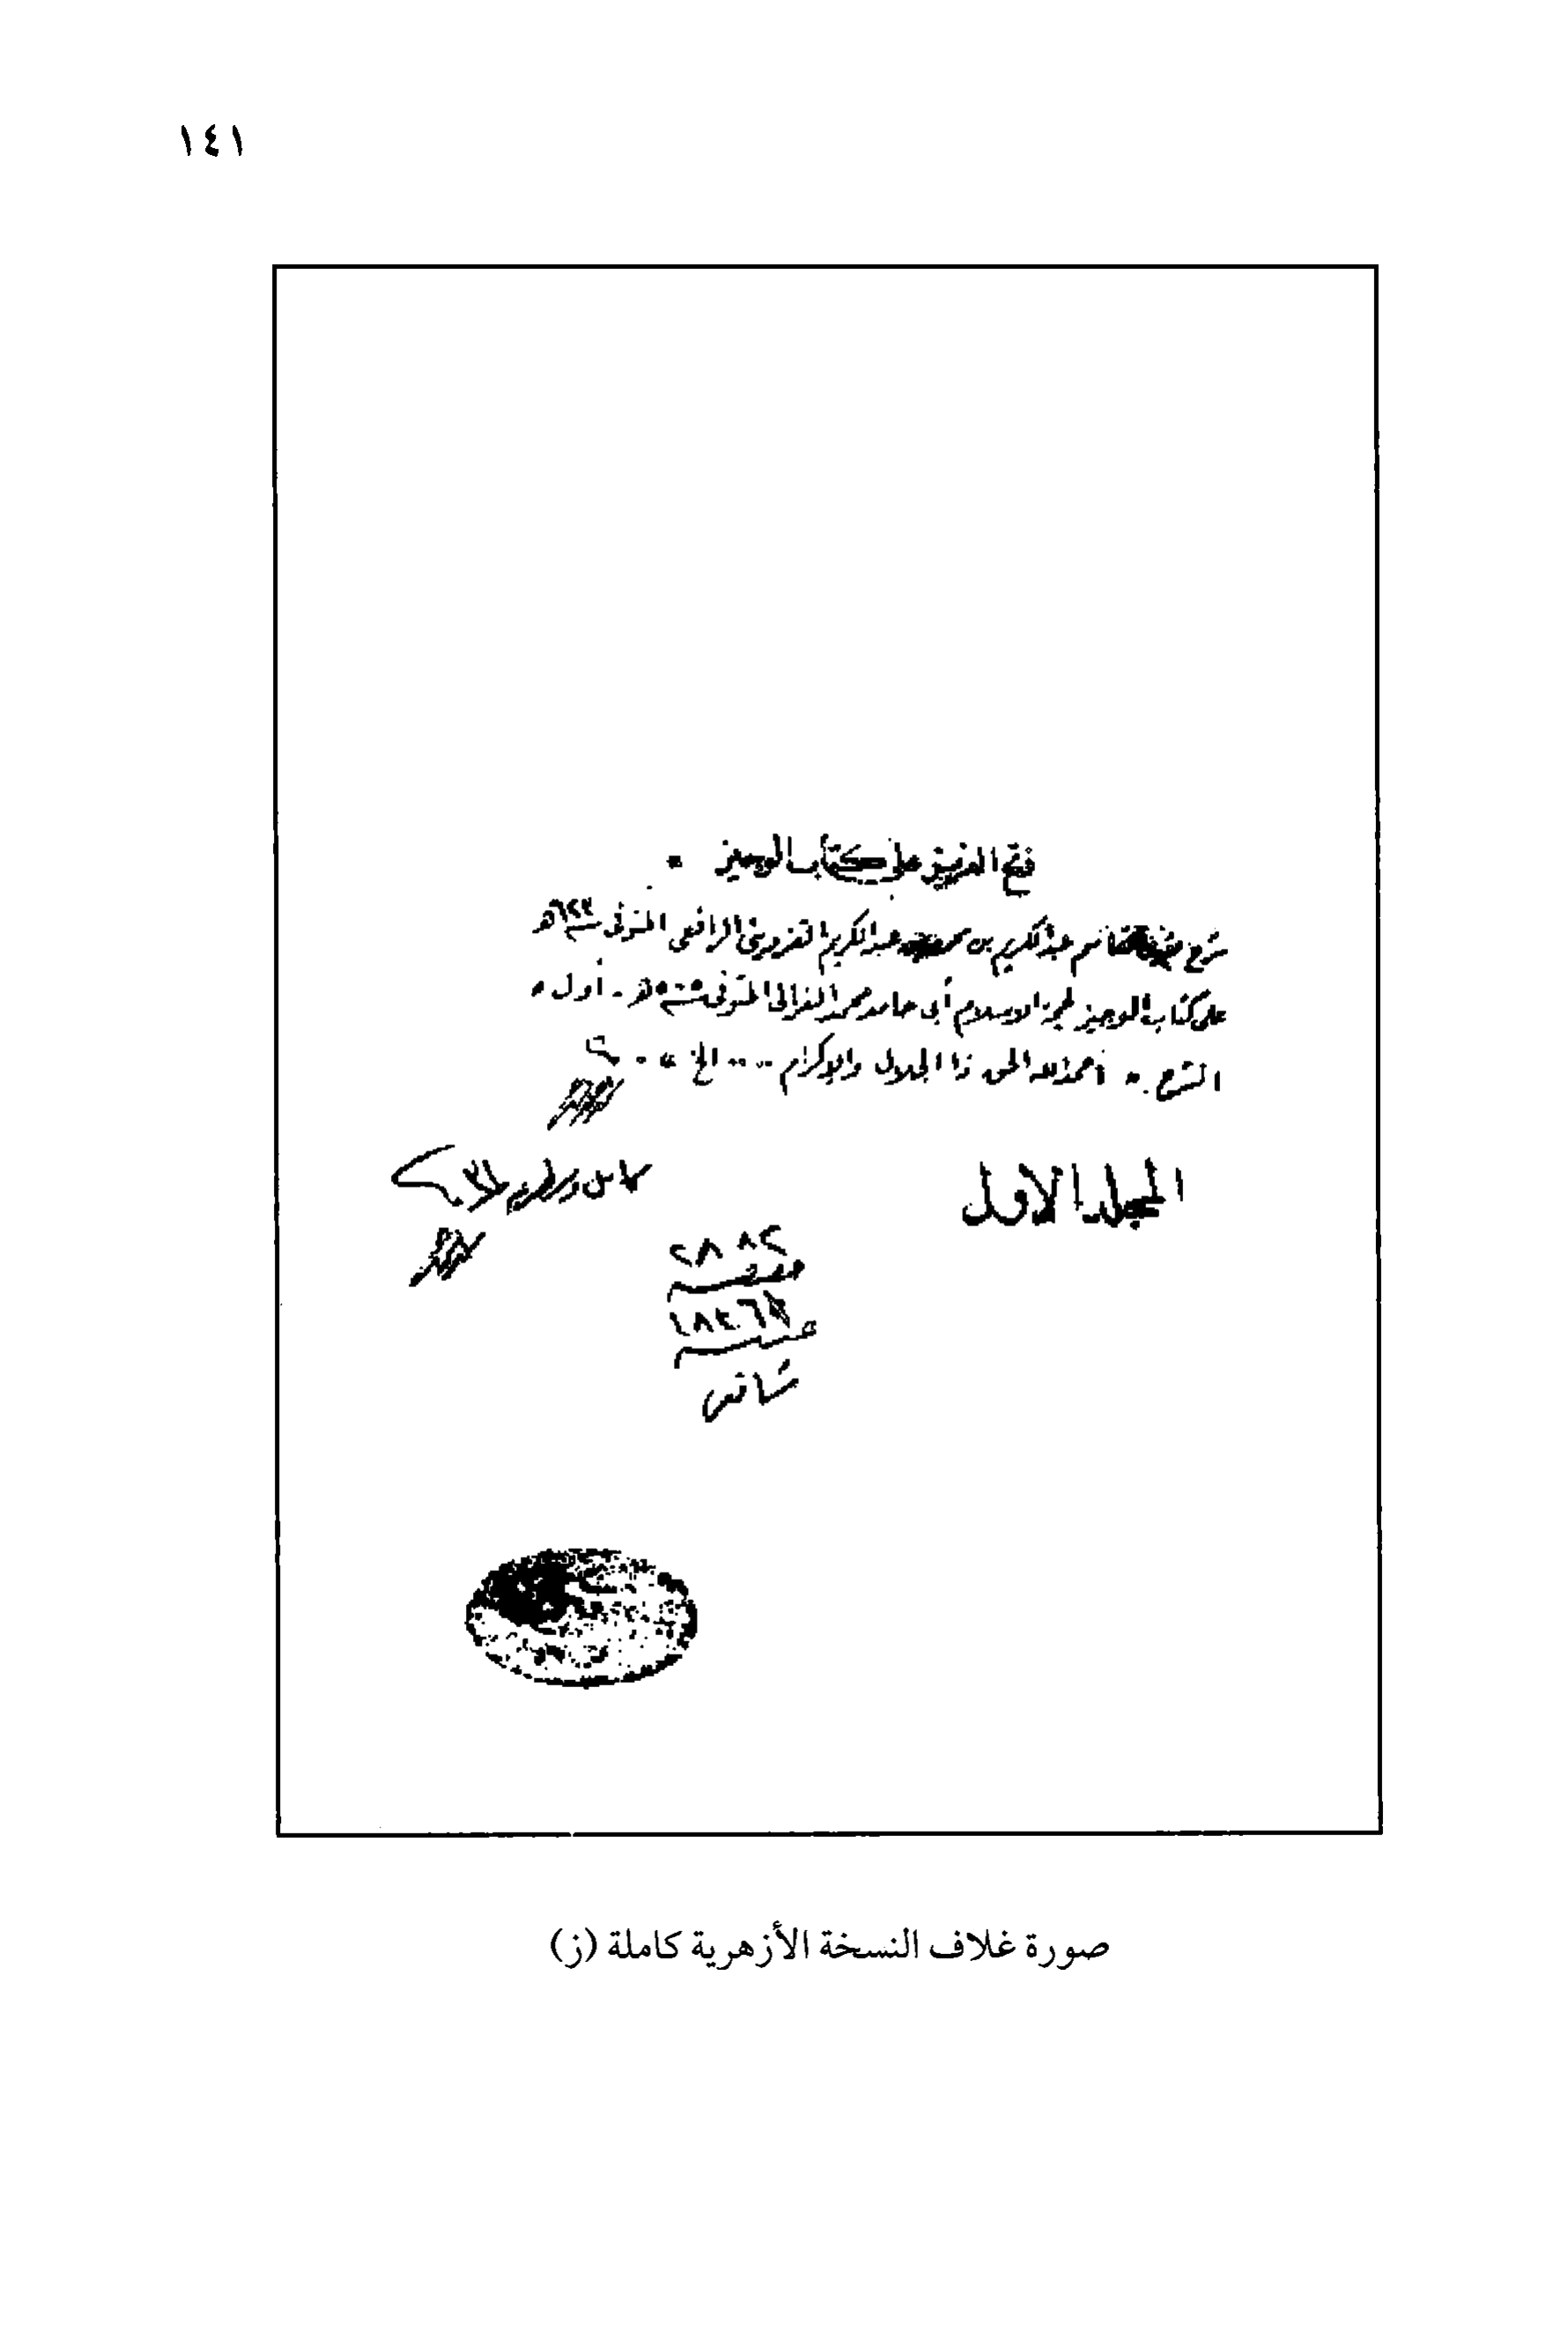 ١٤١
فتح العزيز على كتاب الوجيز *
شرح عبد الكريم بن محمد عبد الكريم القزوينى الرافعى المتوفى سنة ٦٢٣ هـ
على كتاب الوجيز لحجة الاسلام أبى حامد محمد الغزالى المتوفى سنة ٥٠٥ هـ - أول
الشرح * أحمد الله الحق ذا الجلال والإكرام .... الخ
المجلد الاول
كامل
٢٨٨٢
شافعى
صورة غلاف النسخة الأزهرية كاملة (ز)